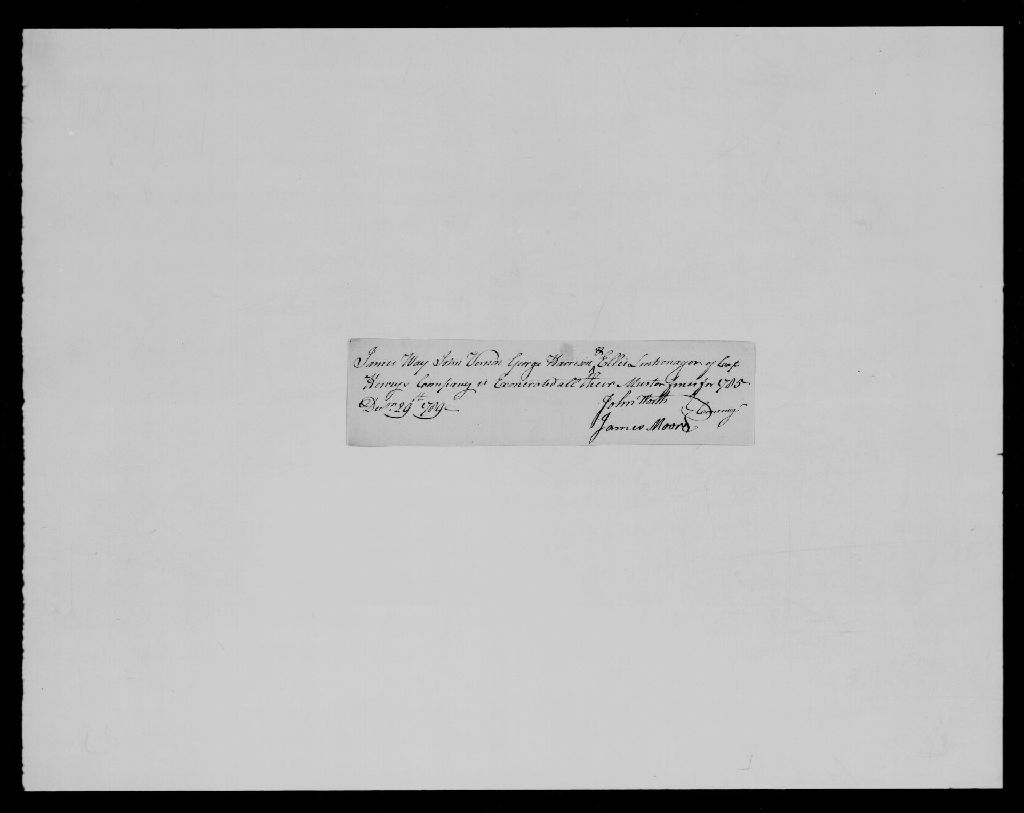 James Way John Vernon George Harrison & Ellis of Capt
Company is Exonerated all their Muster fines for 1785
Decm. 29th 1789
John Worth
James Moore